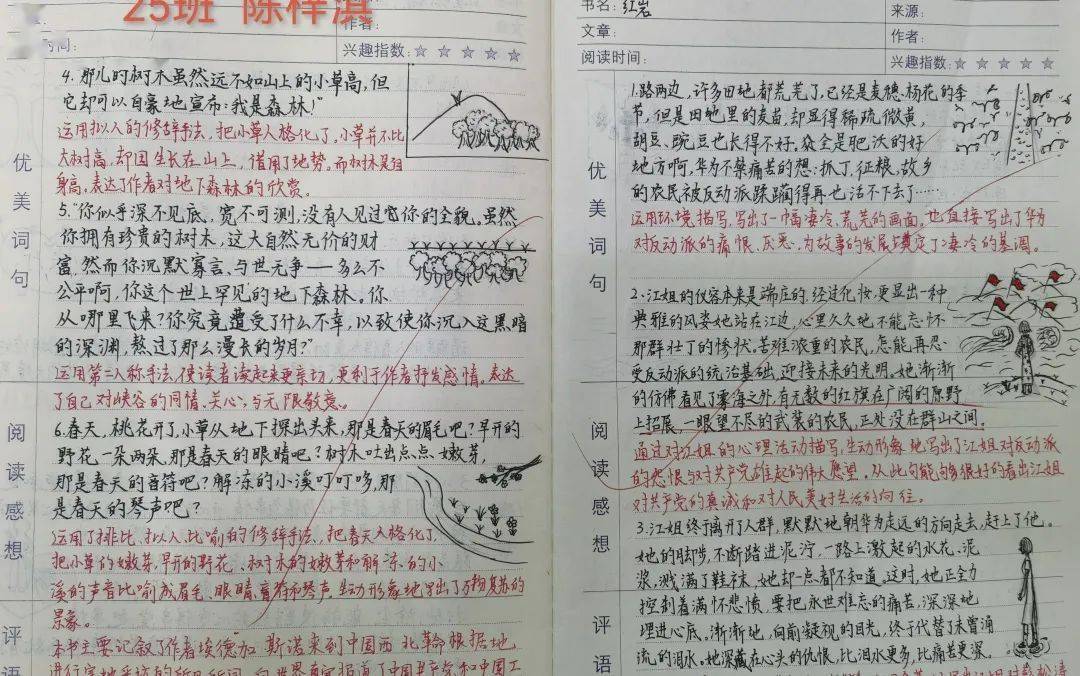 25班 陈梓淇
作者：
时间：
兴趣指数：☆ ☆ ☆ ☆ ☆
优美词句
4. 那儿的树木虽然远不如山上的小草高，但
它却可以自豪地宣布：我是森林！"
运用拟人的修辞手法，把小草人格化了，小草并不比
大树高，却因生长在山上，借用了地势。而树林是自
身高。表达了作者对地下森林的欣赏。
5."你似乎深不见底，宽不可测，没有人见过你的全貌，虽然
你拥有珍贵的树木，这大自然无价的财
富，然而你沉默寡言、与世无争——多么不
公平啊，你这个世上罕见的地下森林。你
从哪里飞来？你究竟遭受了什么不幸，以致使你沉入这黑暗
的深渊，熬过了那么漫长的岁月？"
运用第二人称手法，使读者读起来更亲切，更利于作者抒发感情。表达
了自己对峡谷的同情、关心，与无限敬意。
阅读感想
6.春天，桃花开了，小草从地下探出头来，那是春天的眉毛吧？早开的
野花一朵两朵，那是春天的眼睛吧？树木吐出点点嫩芽，
那是春天的音符吧？解冻的小溪叮叮咚咚，那
是春天的琴声吧？
运用了排比、拟人、比喻的修辞手法，把春天人格化了，
把小草的嫩芽，早开的野花、树木的嫩芽和解冻的小
溪的声音比喻成眉毛、眼睛、音符和琴声，生动形象地写出了万物复苏的
景象。
评语
本书主要记叙了作者埃德加·斯诺来到中国西北革命根据地
进行实地采访的所见所闻，向世界真实报道了中国共产党和中国工
书名：红岩
来源：
文章：
作者：
阅读时间：
兴趣指数：☆ ☆ ☆ ☆ ☆
优美词句
1.路两边，许多田地都荒芜了，已经是麦穗扬花的季
节，但是田地里的麦苗，却显得稀疏、微黄，
胡豆、豌豆也长得不好。
地方啊，华为不禁痛苦的想：抓丁，征粮，故乡
的农民被反动派蹂躏得再也活不下去了……
运用环境描写，写出了一幅凄冷、荒芜的画面。也直接写出了华为
对反动派的痛恨、厌恶，为故事的发展奠定了凄冷的基调。
2.江姐的仪容本来是端庄的，经过化妆，更显出一种
典雅的风姿她站在江边，心里久久地不能忘怀
那群壮丁的惨状。苦难深重的农民，怎能再忍
受反动派的统治基础，迎接未来的光明。她渐渐
的仿佛看见了雾海之外，有无数的红旗在广阔的原野
上招展，一眼望不尽的武装的农民，正处没在群山之间。
阅读感想
通过对江姐的心理活动描写，生动形象地写出了江姐对反动派
的怨恨与对共产党雄起的伟大愿望。从此句能够很好的看出江姐
对共产党的真诚和对人民美好生活的向往。
3.江姐终于离开了人群，默默地朝华为走远的方向走去，赶上了他。
她的脚步，不断踏进泥泞，一路上激起的水花、泥
浆，溅满了鞋袜，她却一点都不知道。这时，她正全力
控制着满怀悲愤，要把永世难忘的痛苦，深深地
埋进心底，渐渐地，向前凝视的目光，终于代替了未曾涌
流的泪水。她深藏在心头的仇恨，比泪水更多，比痛苦更深。
评语